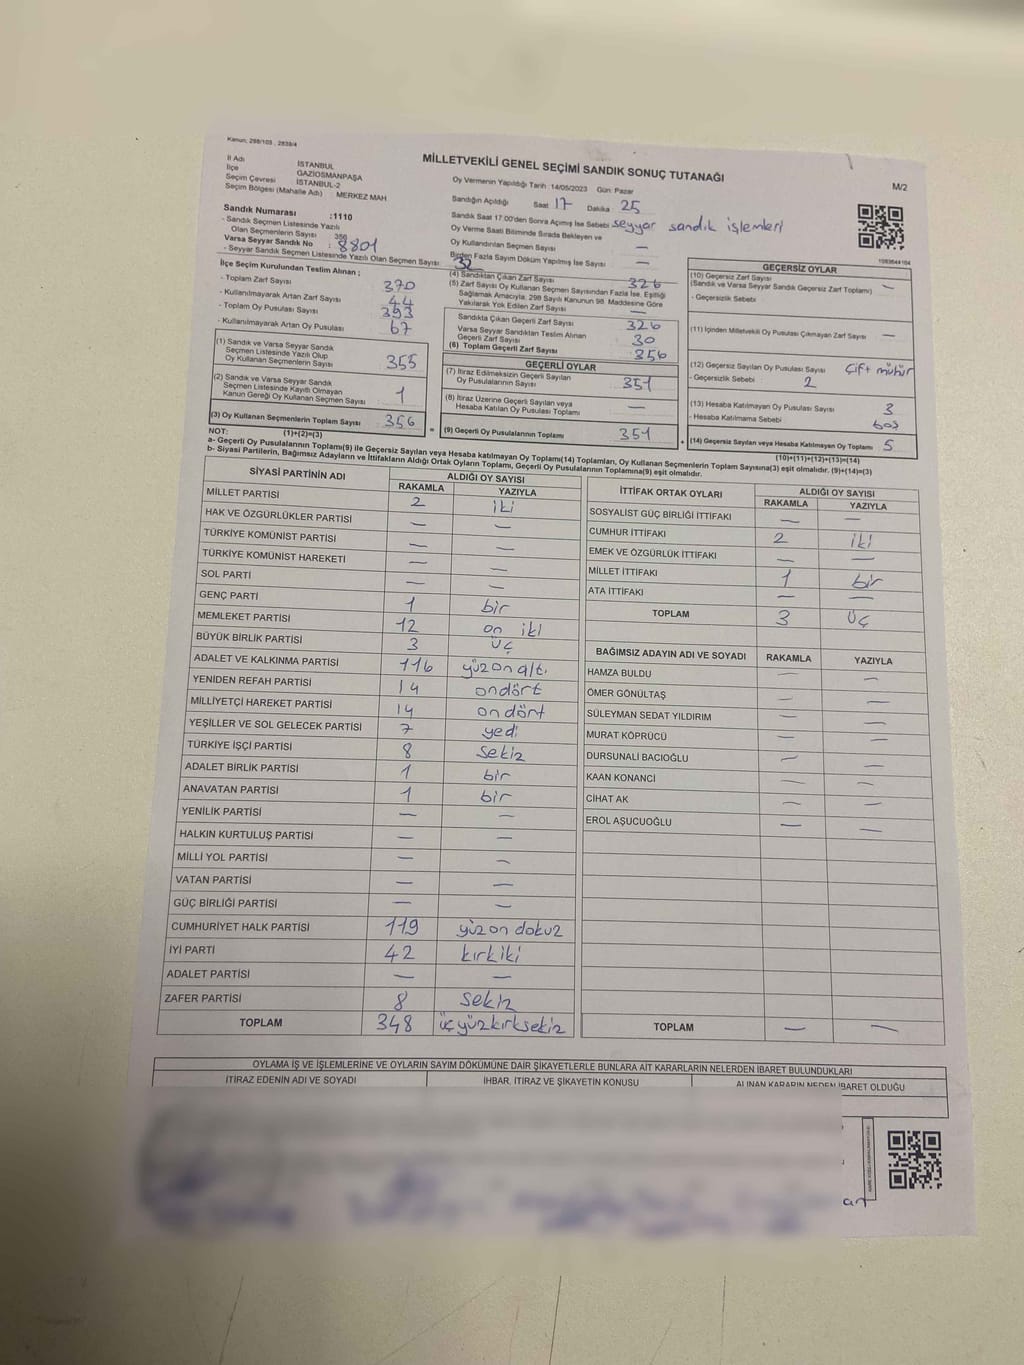 Kanun, 298/105 , 2839/4
MİLLETVEKİLİ GENEL SEÇİMİ SANDIK SONUÇ TUTANAĞI
M/2
İl Adı İSTANBUL
İlçe GAZİOSMANPAŞA
Seçim Çevresi İSTANBUL-2
Seçim Bölgesi (Mahalle Adı) : MERKEZ MAH
Sandık Numarası :1110
- Sandık Seçmen Listesinde Yazılı
Olan Seçmenlerin Sayısı : 356
Varsa Seyyar Sandık No : 8801
- Seyyar Sandık Seçmen Listesinde Yazılı Olan Seçmen Sayısı : 32
Oy Vermenin Yapıldığı Tarih :14/05/2023 Gün: Pazar
Sandığın Açıldığı Saat 17 Dakika : 25
Sandık Saat 17:00'den Sonra Açımış İse Sebebi seyyar sandık işlemleri
Oy Verme Saati Bitiminde Sırada Bekleyen ve
Oy Kullandırılan Seçmen Sayısı —
Birden Fazla Sayım Döküm Yapılmış İse Sayısı —
1093644184
İlçe Seçim Kurulundan Teslim Alınan ;
- Toplam Zarf Sayısı 370
- Kullanılmayarak Artan Zarf Sayısı 44
- Toplam Oy Pusulası Sayısı 393
- Kullanılmayarak Artan Oy Pusulası 67
(1) Sandık ve Varsa Seyyar Sandık
Seçmen Listesinde Yazılı Olup
Oy Kullanan Seçmenlerin Sayısı 355
(2) Sandık ve Varsa Seyyar Sandık
Seçmen Listesinde Kayıtlı Olmayan
Kanun Gereği Oy Kullanan Seçmen Sayısı 1
(3) Oy Kullanan Seçmenlerin Toplam Sayısı 356
(4) Sandıktan Çıkan Zarf Sayısı 326
(5) Zarf Sayısı Oy Kullanan Seçmen Sayısından Fazla İse, Eşitliği
Sağlamak Amacıyla; 298 Sayılı Kanunun 98. Maddesine Göre
Yakılarak Yok Edilen Zarf Sayısı —
Sandıkta Çıkan Geçerli Zarf Sayısı 326
Varsa Seyyar Sandıktan Teslim Alınan
Geçerli Zarf Sayısı 30
(6) Toplam Geçerli Zarf Sayısı 356
GEÇERLİ OYLAR
(7) İtiraz Edilmeksizin Geçerli Sayılan
Oy Pusulalarının Sayısı 351
(8) İtiraz Üzerine Geçerli Sayılan veya
Hesaba Katılan Oy Pusulası Toplamı —
= (9) Geçerli Oy Pusulalarının Toplamı 351
GEÇERSİZ OYLAR
(10) Geçersiz Zarf Sayısı
(Sandık ve Varsa Seyyar Sandık Geçersiz Zarf Toplamı) —
- Geçersizlik Sebebi
(11) İçinden Milletvekili Oy Pusulası Çıkmayan Zarf Sayısı —
(12) Geçersiz Sayılan Oy Pusulası Sayısı çift mühür
- Geçersizlik Sebebi : 2
(13) Hesaba Katılmayan Oy Pusulası Sayısı 3
- Hesaba Katılmama Sebebi boş
+ (14) Geçersiz Sayılan veya Hesaba Katılmayan Oy Toplamı 5
NOT: (1)+(2)=(3)
(10)+(11)+(12)+(13)=(14)
a- Geçerli Oy Pusulalarının Toplamı(9) ile Geçersiz Sayılan veya Hesaba katılmayan Oy Toplamı(14) Toplamları, Oy Kullanan Seçmenlerin Toplam Sayısına(3) eşit olmalıdır. (9)+(14)=(3)
b- Siyasi Partilerin, Bağımsız Adayların ve İttifakların Aldığı Ortak Oyların Toplamı, Geçerli Oy Pusulalarının Toplamına(9) eşit olmalıdır.
SİYASİ PARTİNİN ADI ALDIĞI OY SAYISI
RAKAMLA YAZIYLA
MİLLET PARTİSİ 2 iki
HAK VE ÖZGÜRLÜKLER PARTİSİ — —
TÜRKİYE KOMÜNİST PARTİSİ — —
TÜRKİYE KOMÜNİST HAREKETİ — —
SOL PARTİ — —
GENÇ PARTİ 1 bir
MEMLEKET PARTİSİ 12 on iki
BÜYÜK BİRLİK PARTİSİ 3 üç
ADALET VE KALKINMA PARTİSİ 116 yüzonaltı
YENİDEN REFAH PARTİSİ 14 ondört
MİLLİYETÇİ HAREKET PARTİSİ 14 ondört
YEŞİLLER VE SOL GELECEK PARTİSİ 7 yedi
TÜRKİYE İŞÇİ PARTİSİ 8 sekiz
ADALET BİRLİK PARTİSİ 1 bir
ANAVATAN PARTİSİ 1 bir
YENİLİK PARTİSİ — —
HALKIN KURTULUŞ PARTİSİ — —
MİLLİ YOL PARTİSİ — —
VATAN PARTİSİ — —
GÜÇ BİRLİĞİ PARTİSİ — —
CUMHURİYET HALK PARTİSİ 119 yüz on dokuz
İYİ PARTİ 42 kırkiki
ADALET PARTİSİ — —
ZAFER PARTİSİ 8 sekiz
TOPLAM 348 üçyüzkırksekiz
İTTİFAK ORTAK OYLARI ALDIĞI OY SAYISI
RAKAMLA YAZIYLA
SOSYALİST GÜÇ BİRLİĞİ İTTİFAKI — —
CUMHUR İTTİFAKI 2 iki
EMEK VE ÖZGÜRLÜK İTTİFAKI — —
MİLLET İTTİFAKI 1 bir
ATA İTTİFAKI — —
TOPLAM 3 üç
BAĞIMSIZ ADAYIN ADI VE SOYADI RAKAMLA YAZIYLA
HAMZA BULDU — —
ÖMER GÖNÜLTAŞ — —
SÜLEYMAN SEDAT YILDIRIM — —
MURAT KÖPRÜCÜ — —
DURSUNALİ BACIOĞLU — —
KAAN KONANCİ — —
CİHAT AK — —
EROL AŞUCUOĞLU — —
TOPLAM — —
OYLAMA İŞ VE İŞLEMLERİNE VE OYLARIN SAYIM DÖKÜMÜNE DAİR ŞİKAYETLERLE BUNLARA AİT KARARLARIN NELERDEN İBARET BULUNDUKLARI
İTİRAZ EDENİN ADI VE SOYADI İHBAR, İTİRAZ VE ŞİKAYETİN KONUSU ALINAN KARARIN NEDEN İBARET OLDUĞU
an